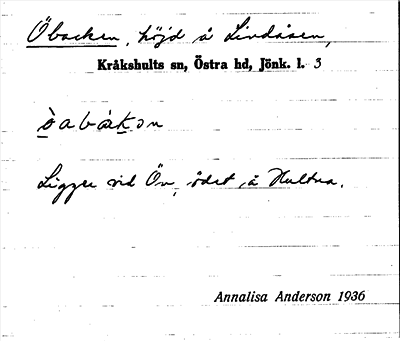 Öbacken, höjd å Lindåsen,
Kråkshults sn, Östra hd, Jönk. l. 3
Ligger vid Ön, ödet, å Hultna.
Annalisa Anderson 1936